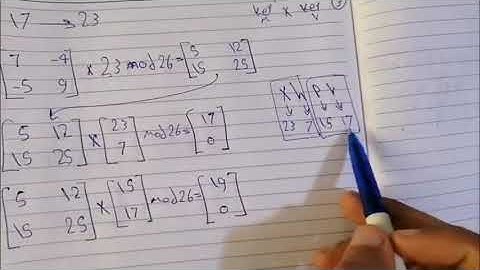 17 → 23
key x key
7 -4
-5 9
x 23 mod 26 =
5 12
15 25
5 12
15 25
x
23
7
mod 26 =
17
0
X H P
23 7 15 17
5 12
15 25
x
15
17
mod 26 =
19
0